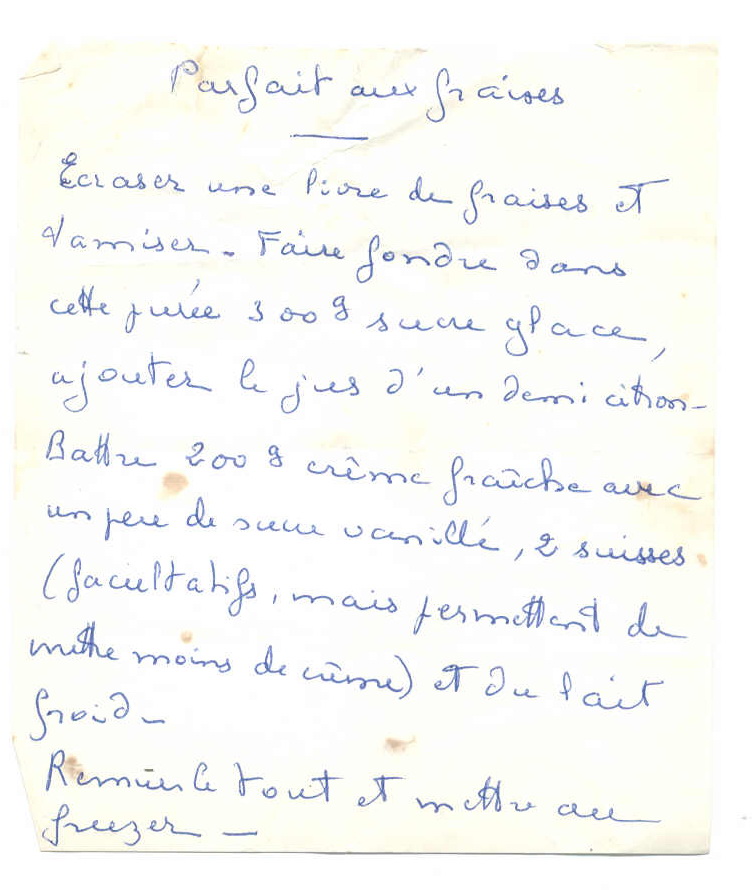 Parfait aux fraises
Écraser une livre de fraises et
tamiser - Faire fondre dans
cette purée 300 g sucre glace,
ajouter le jus d'un demi citron -
Battre 200 g crème fraîche avec
un peu de sucre vanillé, 2 suisses
(facultatifs, mais permettent de
mettre moins de crème) et du lait
froid -
Remuer le tout et mettre au
freezer -